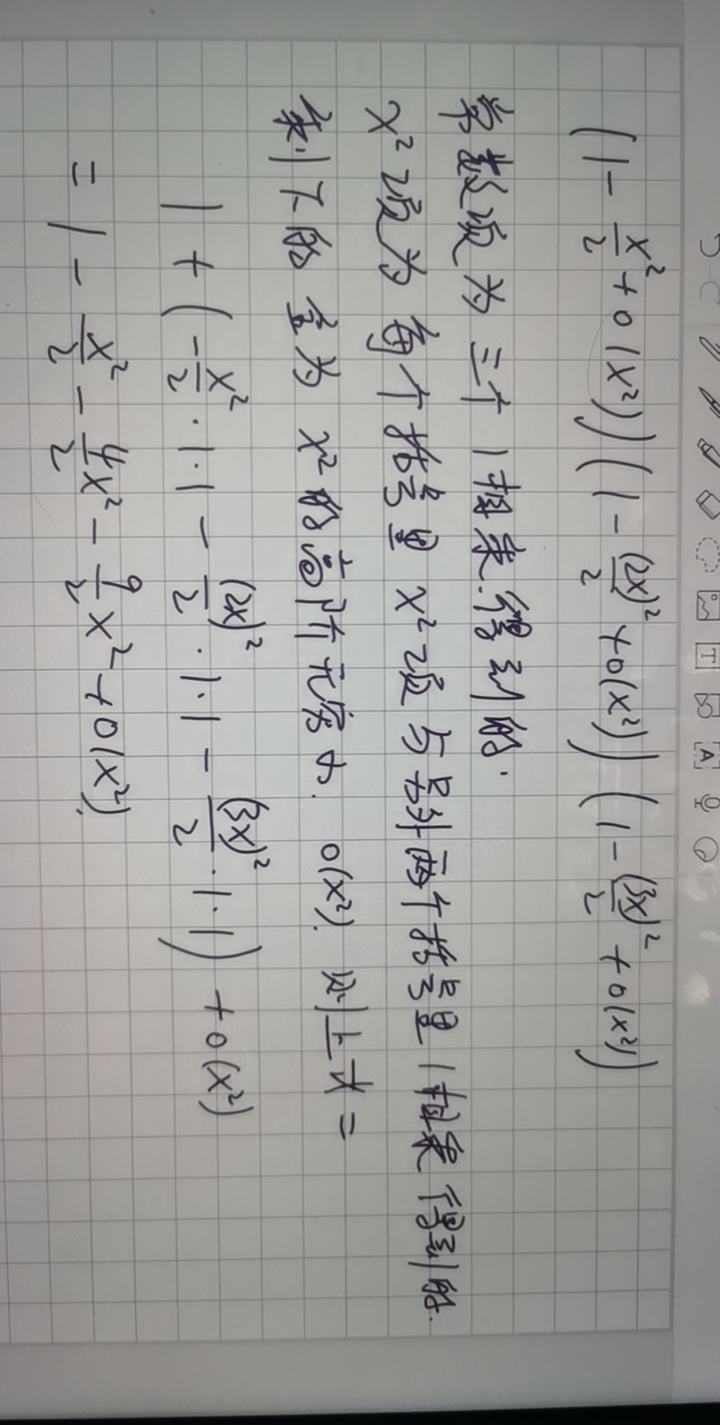 (1 - x²/2 + o(x²)) (1 - (2x)²/2 + o(x²)) (1 - (3x)²/2 + o(x²))
常数项为三个1相乘得到的.
x²项为每个括号里x²项与另外两个括号里1相乘得到的.
剩下的全为x²的高阶无穷小. o(x²). 则上式 =
1 + (-x²/2 ·1·1 - (2x)²/2 ·1·1 - (3x)²/2 ·1·1) + o(x²)
= 1 - x²/2 - 4/2 x² - 9/2 x² + o(x²).